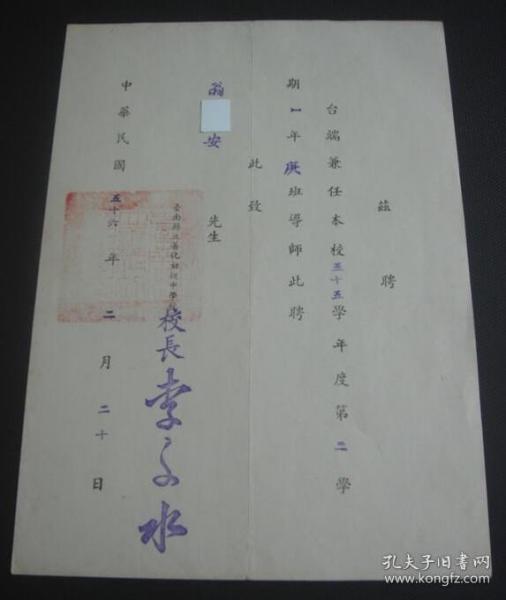 茲聘
台端兼任本校五十五學年度第二學
期1年庚班導師此聘
此致
翁 安 先生
臺南縣立善化初級中學
校長李文水
中華民國五十六年二月二十日
孔夫子旧书网
www.kongfz.com